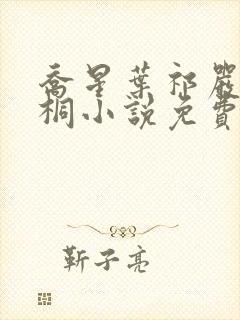 喬星葉祁嚴
桐小說免費
靳子亮